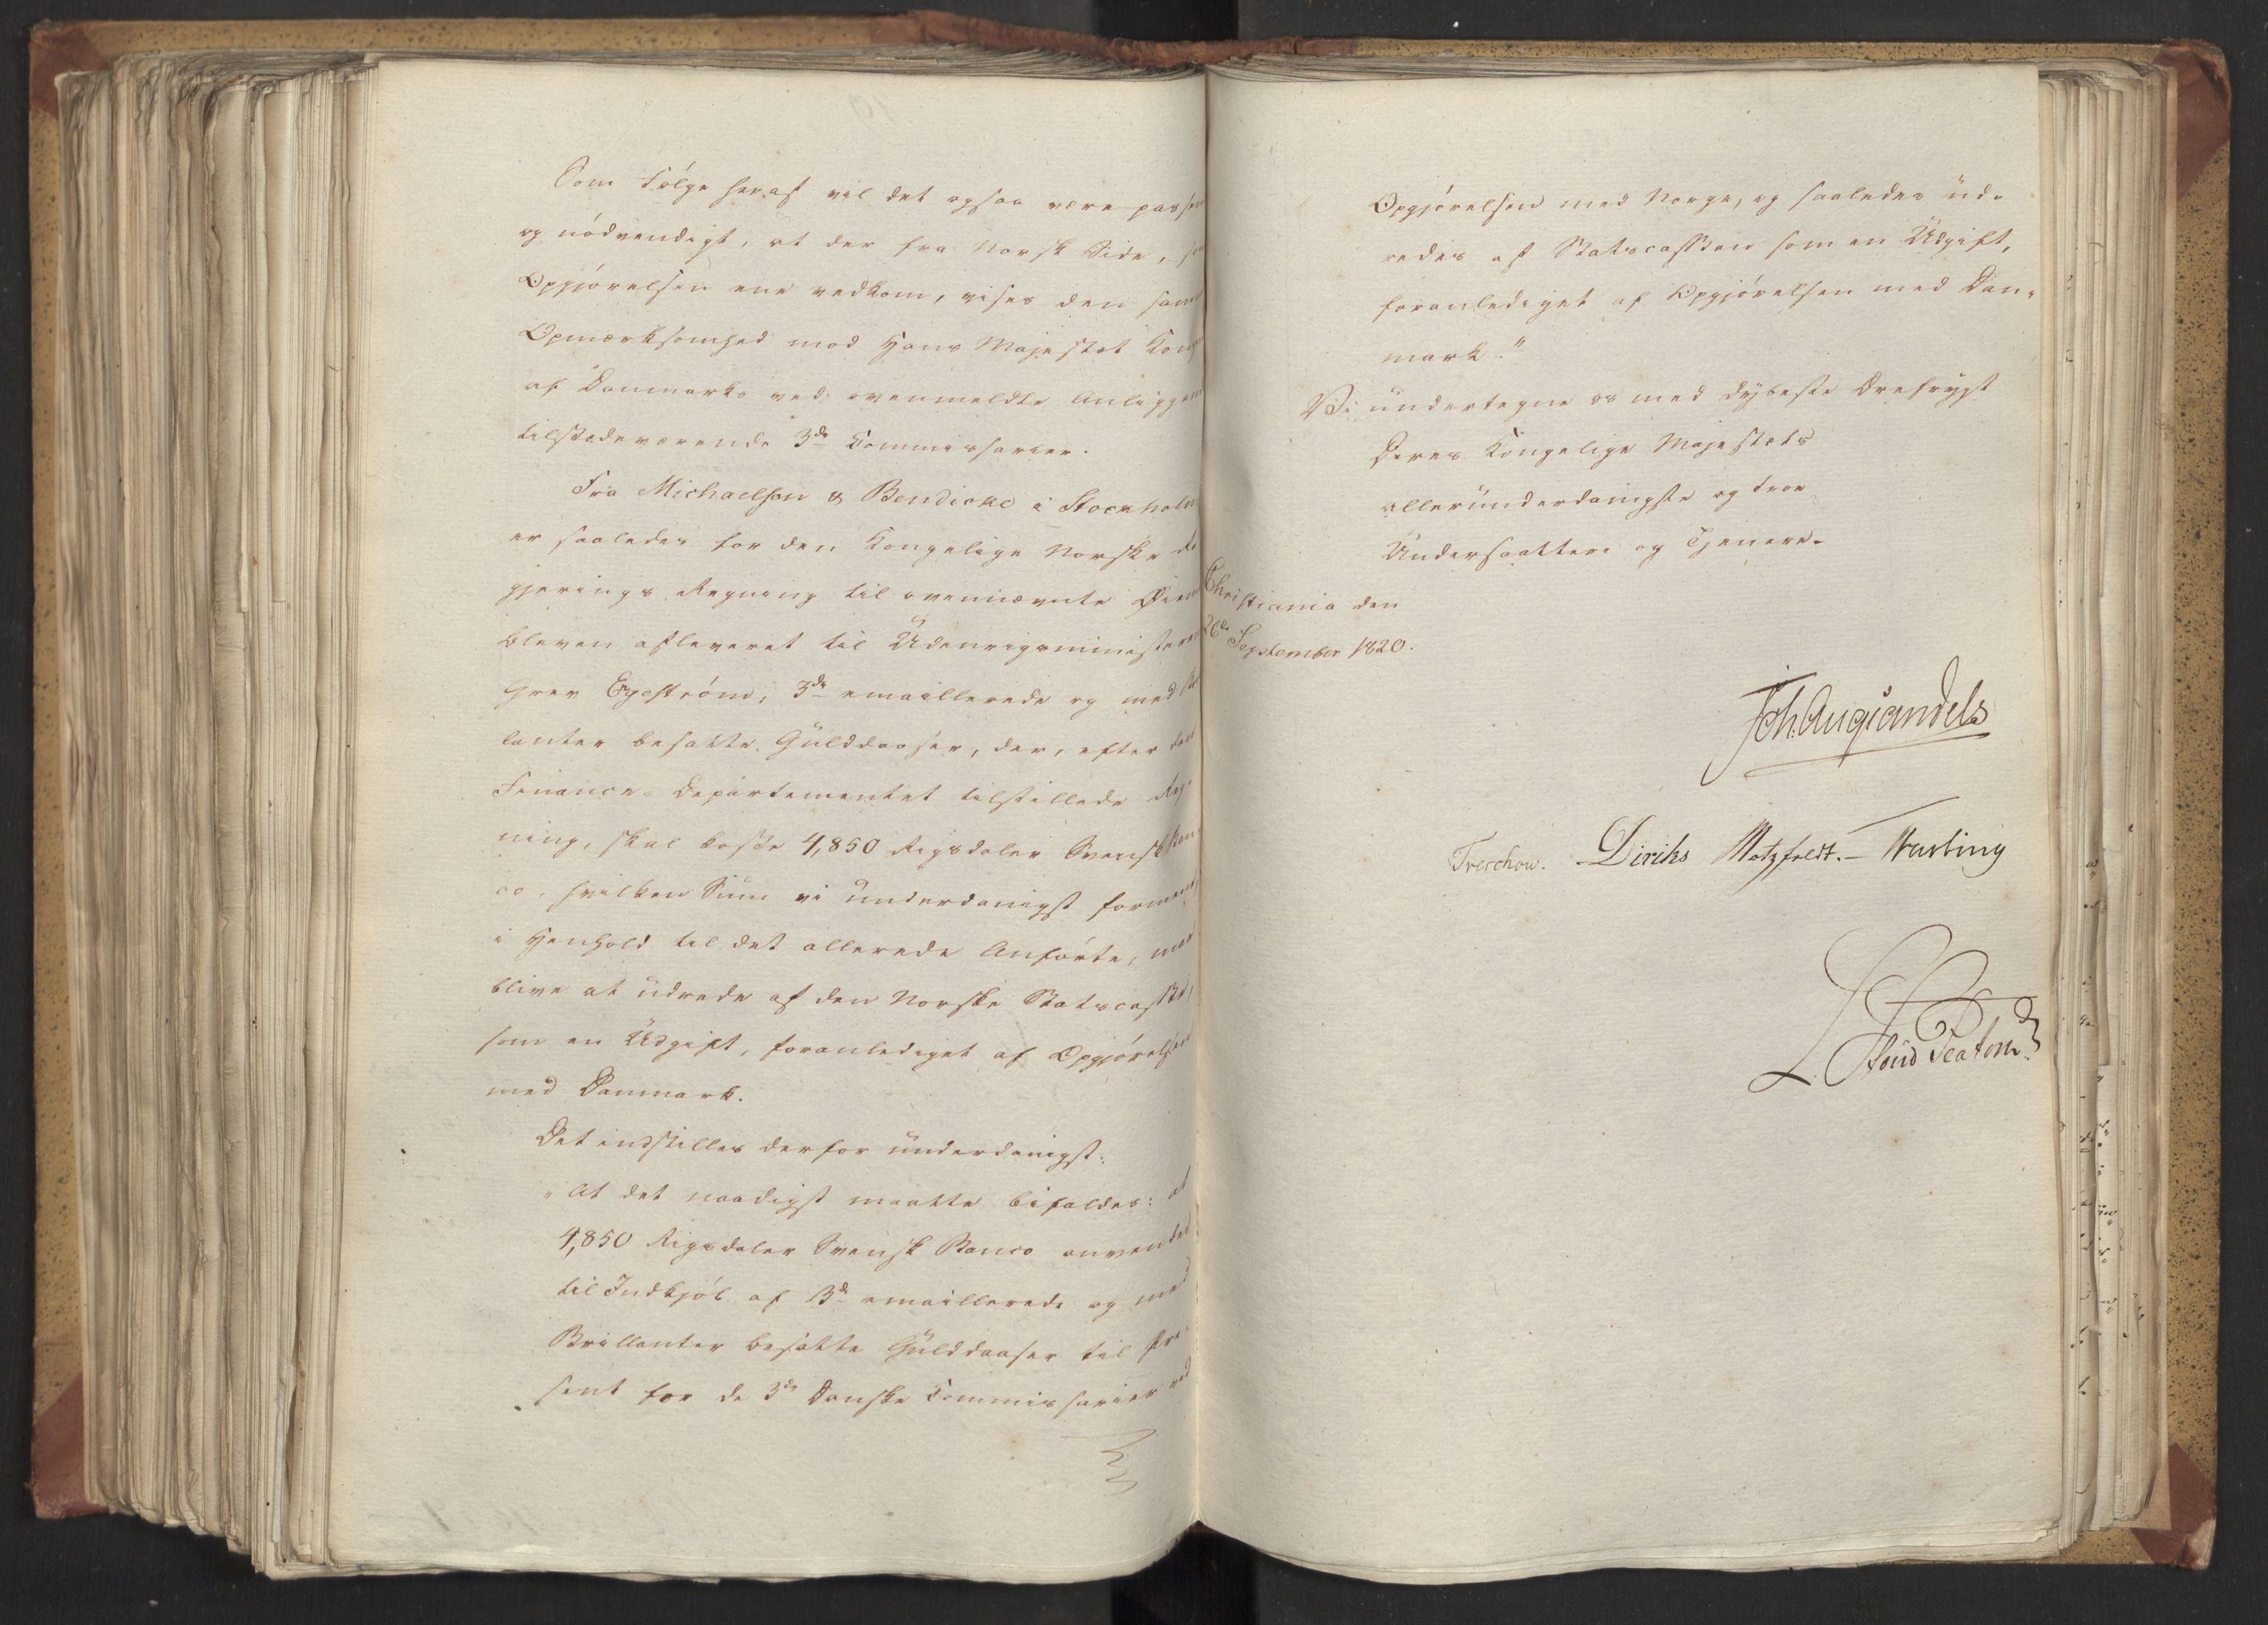 Som Følge heraf vil det ogsaa være passen
og nödvendigt, at der fra Norsk Side,
Opgjörelsen ene vedkom, vises den sam
Opmærksomhed mod Hans Majestæt Kong
af Danmarks ved ovenmeldte Anliggen
tilstedeværende 3de Commissarier.
Fra Michaelson & Bendicke i Stockholm
er saaledes for den Kongelige Norske Re
gjerings Regning til ovennævnte Øiem
bleven afleveret til Udenrigsministeren
Grev Engeström, 3de emaillerede og med
lanter besatte Gulddaaser, der, efter den
Finance-Departementet tilstillede Reg-
ning, skal koste 4,850 Rigsdaler Svensk Ban
co, hvilken Sum vi underdanigst formene,
i Henhold til det allerede Anförte, maa
blive at udrede af den Norske Statscasse,
som en Udgift, foranlediget af Opgjörelsen
med Danmark.
Det indstilles derfor underdanigst:
"At det naadigst maatte bifaldes: at
4,850 Rigsdaler Svensk Banco anvendes
til Indkjöb af 3de emaillerede og med
Brillanter besatte Gulddaaser til Præ-
sent for de 3de Danske Commissarier ved
Opgjörelsen med Norge, og saaledes ud-
redes af Statscassen som en Udgift,
foranlediget af Opgjörelsen med Dan-
mark."
Vi undertegne os med dybeste Ærefrygt
Deres Kongelige Majestæts
allerunderdanigste og troe
Undersaatter og Tjenere.
Christiania den
26de September 1820.
Joh. Aug. Sandels
Treschow. Diriks Motzfeldt. Krebting